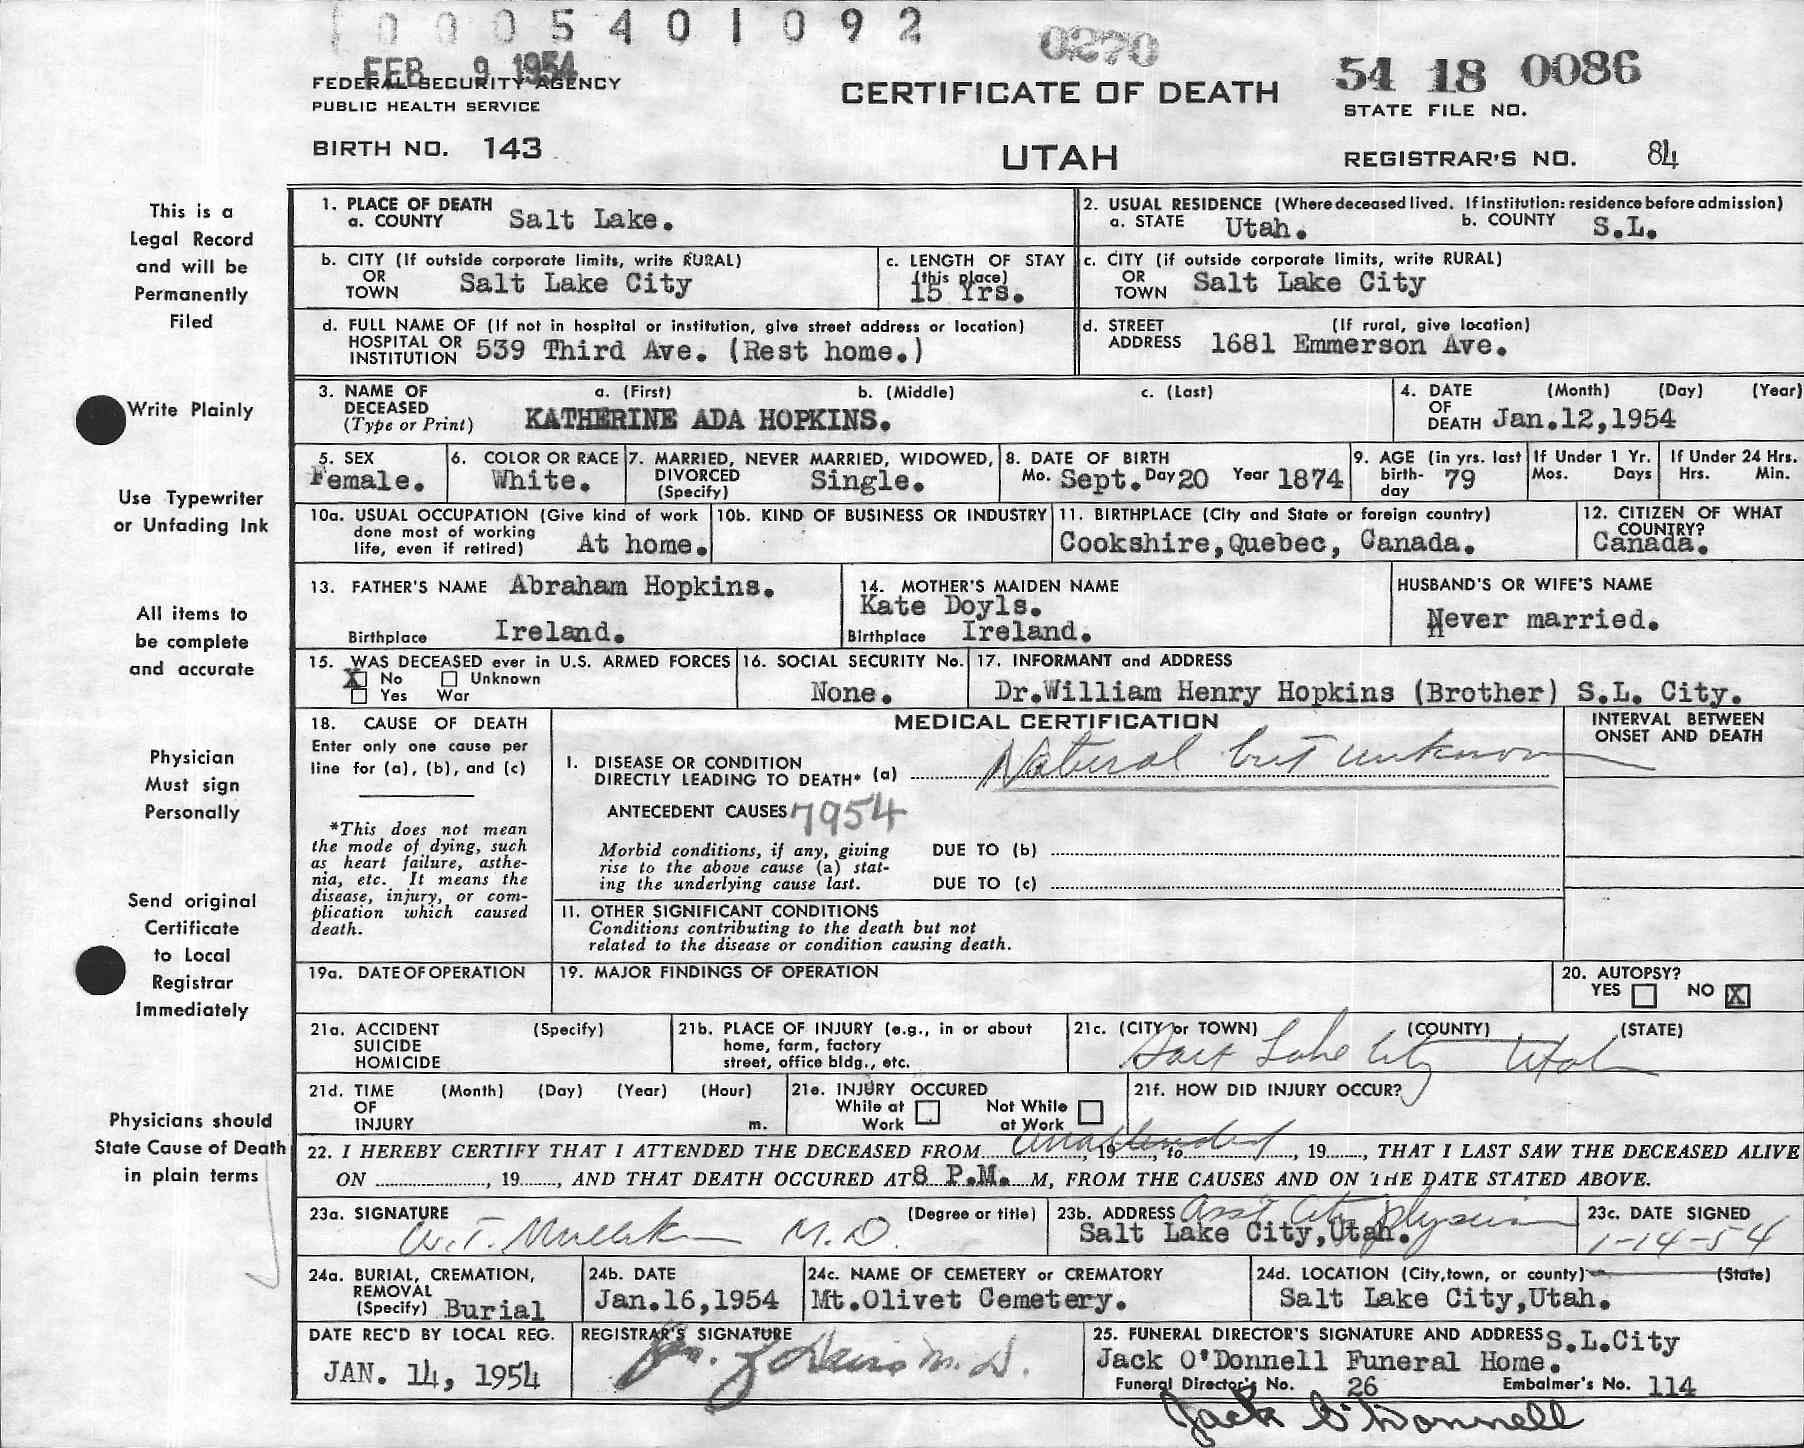 0005401092
FEB 9 1954
0270
54 18 0086
FEDERAL SECURITY AGENCY
PUBLIC HEALTH SERVICE
CERTIFICATE OF DEATH
STATE FILE NO.
BIRTH NO. 143
UTAH
REGISTRAR'S NO. 84
This is a
Legal Record
and will be
Permanently
Filed
Write Plainly
Use Typewriter
or Unfading Ink
All items to
be complete
and accurate
Physician
Must sign
Personally
Send original
Certificate
to Local
Registrar
Immediately
Physicians should
State Cause of Death
in plain terms
1. PLACE OF DEATH
a. COUNTY Salt Lake.
2. USUAL RESIDENCE (Where deceased lived. If institution: residence before admission)
a. STATE Utah. b. COUNTY S.L.
b. CITY (If outside corporate limits, write RURAL)
OR
TOWN Salt Lake City
c. LENGTH OF STAY
(this place)
15 Yrs.
c. CITY (if outside corporate limits, write RURAL)
OR
TOWN Salt Lake City
d. FULL NAME OF (If not in hospital or institution, give street address or location)
HOSPITAL OR
INSTITUTION 539 Third Ave. (Rest home.)
d. STREET (If rural, give location)
ADDRESS 1681 Emmerson Ave.
3. NAME OF a. (First) b. (Middle) c. (Last)
DECEASED
(Type or Print) KATHERINE ADA HOPKINS.
4. DATE (Month) (Day) (Year)
OF
DEATH Jan.12,1954
5. SEX
Female.
6. COLOR OR RACE
White.
7. MARRIED, NEVER MARRIED, WIDOWED,
DIVORCED
(Specify) Single.
8. DATE OF BIRTH
Mo. Sept. Day 20 Year 1874
9. AGE (in yrs. last
birth-
day 79
If Under 1 Yr.
Mos. Days
If Under 24 Hrs.
Hrs. Min.
10a. USUAL OCCUPATION (Give kind of work
done most of working
life, even if retired) At home.
10b. KIND OF BUSINESS OR INDUSTRY
11. BIRTHPLACE (City and State or foreign country)
Cookshire,Quebec, Canada.
12. CITIZEN OF WHAT
COUNTRY?
Canada.
13. FATHER'S NAME Abraham Hopkins.
Birthplace Ireland.
14. MOTHER'S MAIDEN NAME
Kate Doyls.
Birthplace Ireland.
HUSBAND'S OR WIFE'S NAME
Never married.
15. WAS DECEASED ever in U.S. ARMED FORCES
X No Unknown
Yes War
16. SOCIAL SECURITY No.
None.
17. INFORMANT and ADDRESS
Dr.William Henry Hopkins (Brother) S.L. City.
18. CAUSE OF DEATH
Enter only one cause per
line for (a), (b), and (c)
*This does not mean
the mode of dying, such
as heart failure, asthe-
nia, etc. It means the
disease, injury, or com-
plication which caused
death.
MEDICAL CERTIFICATION
INTERVAL BETWEEN
ONSET AND DEATH
I. DISEASE OR CONDITION
DIRECTLY LEADING TO DEATH* (a) Natural but unknown
ANTECEDENT CAUSES 7954
Morbid conditions, if any, giving
rise to the above cause (a) stat-
ing the underlying cause last.
DUE TO (b)
DUE TO (c)
11. OTHER SIGNIFICANT CONDITIONS
Conditions contributing to the death but not
related to the disease or condition causing death.
19a. DATE OF OPERATION
19. MAJOR FINDINGS OF OPERATION
20. AUTOPSY?
YES NO X
21a. ACCIDENT (Specify)
SUICIDE
HOMICIDE
21b. PLACE OF INJURY (e.g., in or about
home, farm, factory
street, office bldg., etc.
21c. (CITY or TOWN) (COUNTY) (STATE)
Salt Lake City Utah
21d. TIME (Month) (Day) (Year) (Hour)
OF
INJURY m.
21e. INJURY OCCURED
While at Work
Not While at Work
21f. HOW DID INJURY OCCUR?
22. I HEREBY CERTIFY THAT I ATTENDED THE DECEASED FROM unattended, 19, to, 19, THAT I LAST SAW THE DECEASED ALIVE
ON, 19, AND THAT DEATH OCCURED AT 8 P.M. M, FROM THE CAUSES AND ON THE DATE STATED ABOVE.
23a. SIGNATURE (Degree or title)
W.T. M.D.
23b. ADDRESS Asst City Physician
Salt Lake City,Utah.
23c. DATE SIGNED
1-14-54
24a. BURIAL, CREMATION,
REMOVAL
(Specify) Burial
24b. DATE
Jan.16,1954
24c. NAME OF CEMETERY or CREMATORY
Mt.Olivet Cemetery.
24d. LOCATION (City,town, or county) (State)
Salt Lake City,Utah.
DATE REC'D BY LOCAL REG.
JAN. 14, 1954
REGISTRAR'S SIGNATURE
M.D.
25. FUNERAL DIRECTOR'S SIGNATURE AND ADDRESS S.L.City
Jack O'Donnell Funeral Home.
Funeral Director's No. 26 Embalmer's No. 114
Jack O'Donnell